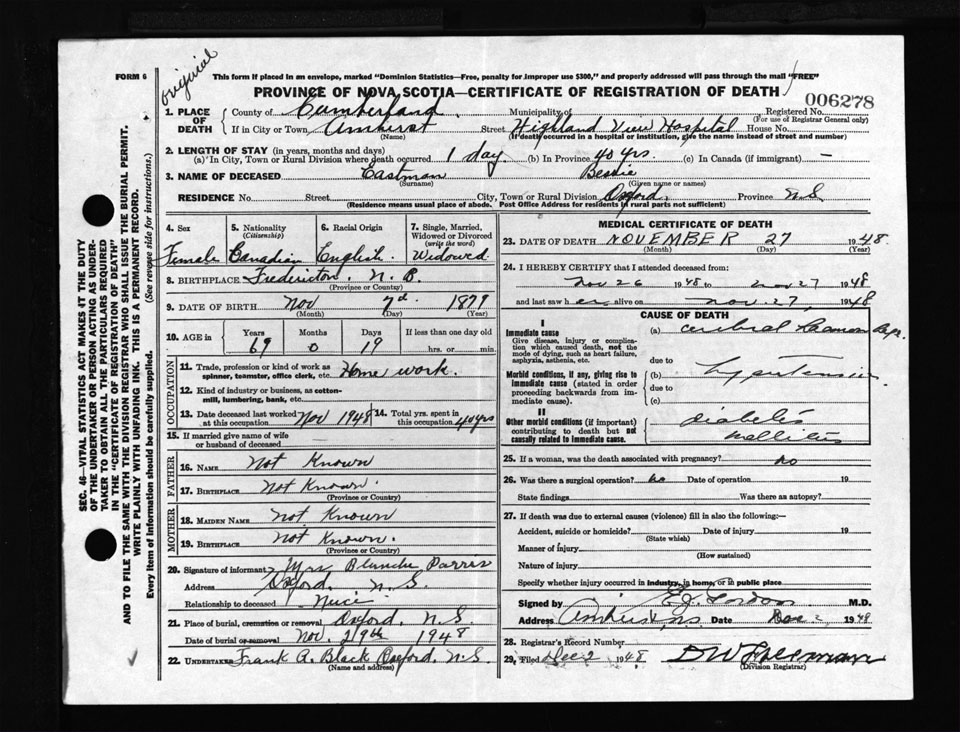 FORM 6
original
This form if placed in an envelope, marked "Dominion Statistics—Free, penalty for improper use $300," and properly addressed will pass through the mail "FREE"
PROVINCE OF NOVA SCOTIA—CERTIFICATE OF REGISTRATION OF DEATH
006278
1. PLACE OF DEATH
County of Cumberland Municipality of Registered No.
(For use of Registrar General only)
If in City or Town Amherst Street Highland View Hospital House No.
(Name) (If death occurred in a hospital or institution, give the name instead of street and number)
2. LENGTH OF STAY (in years, months and days)
(a) In City, Town or Rural Division where death occurred 1 day (b) In Province 40 yrs. (c) In Canada (if immigrant) —
3. NAME OF DECEASED Eastman Bessie
(Surname) (Given name or names)
RESIDENCE No. Street City, Town or Rural Division Oxford Province N.S
(Residence means usual place of abode. Post Office Address for residents in rural parts not sufficient)
4. Sex 5. Nationality (Citizenship) 6. Racial Origin 7. Single, Married, Widowed or Divorced (write the word)
Female Canadian English Widowed
8. BIRTHPLACE Fredericton, N. B.
(Province or Country)
9. DATE OF BIRTH Nov 7d 1879
(Month) (Day) (Year)
10. AGE Years Months Days If less than one day old
69 0 19 hrs. or min.
OCCUPATION
11. Trade, profession or kind of work as spinner, teamster, office clerk, etc. Home work.
12. Kind of industry or business, as cotton-mill, lumbering, bank, etc.
13. Date deceased last worked at this occupation Nov 1948 14. Total yrs. spent in this occupation 40 yrs
15. If married give name of wife or husband of deceased
FATHER
16. NAME Not Known
17. BIRTHPLACE Not Known.
(Province or Country)
MOTHER
18. MAIDEN NAME Not Known
19. BIRTHPLACE Not Known.
(Province or Country)
20. Signature of informant Mrs Blanche Parris
Address Oxford, N. S.
Relationship to deceased Neice
21. Place of burial, cremation or removal Oxford, N.S
Date of burial or removal Nov. 29th 1948
22. UNDERTAKER Frank A. Black Oxford, N.S.
(Name and address)
MEDICAL CERTIFICATE OF DEATH
23. DATE OF DEATH NOVEMBER 27 1948
(Month) (Day) (Year)
24. I HEREBY CERTIFY that I attended deceased from:
Nov 26 1948 to Nov 27 1948
and last saw her alive on Nov. 27, 1948
CAUSE OF DEATH
I
Immediate cause
Give disease, injury or complication which caused death, not the mode of dying, such as heart failure, asphyxia, asthenia, etc.
(a) cerebral haemorrhage
due to
Morbid conditions, if any, giving rise to immediate cause (stated in order proceeding backwards from immediate cause).
(b) hypertension
due to
(c)
II
Other morbid conditions (if important) contributing to death but not causally related to immediate cause.
diabetes
mellitus
25. If a woman, was the death associated with pregnancy? no
26. Was there a surgical operation? no Date of operation 19
State findings Was there an autopsy?
27. If death was due to external causes (violence) fill in also the following:—
Accident, suicide or homicide? Date of injury 19
(State which)
Manner of injury
(How sustained)
Nature of injury
Specify whether injury occurred in industry, in home, or in public place
Signed by E.J. Gordon M.D.
Address Amherst, N.S Date Dec 2 1948
28. Registrar's Record Number
29. Filed Dec 2 1948 D W Freeman
(Division Registrar)
SEC. 46—VITAL STATISTICS ACT MAKES IT THE DUTY
OF THE UNDERTAKER OR PERSON ACTING AS UNDER-
TAKER TO OBTAIN ALL THE PARTICULARS REQUIRED
IN THE "CERTIFICATE OF REGISTRATION OF DEATH"
AND TO FILE THE SAME WITH THE DIVISION REGISTRAR WHO SHALL ISSUE THE BURIAL PERMIT.
WRITE PLAINLY WITH UNFADING INK. THIS IS A PERMANENT RECORD.
Every item of Information should be carefully supplied. (See reverse side for instructions.)